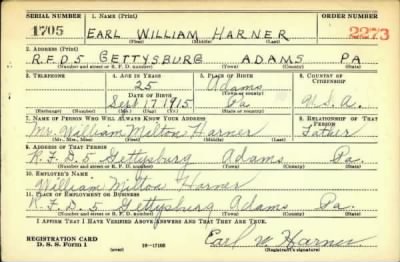 SERIAL NUMBER 1. NAME (Print) ORDER NUMBER
1705 EARL WILLIAM HARNER 2273
(First) (Middle) (Last)
2. ADDRESS (Print)
R.F.D 5 GETTYSBURG ADAMS PA
(Number and street or R. F. D. number) (Town) (County) (State)
3. TELEPHONE 4. AGE IN YEARS 5. PLACE OF BIRTH 6. COUNTRY OF CITIZENSHIP
25 Adams
DATE OF BIRTH (Town or county)
Sept 17 1915 Pa. U.S.A.
(Exchange) (Number) (Mo.) (Day) (Yr.) (State or country)
7. NAME OF PERSON WHO WILL ALWAYS KNOW YOUR ADDRESS 8. RELATIONSHIP OF THAT PERSON
Mr. William Milton Harner Father
(Mr., Mrs., Miss) (First) (Middle) (Last)
9. ADDRESS OF THAT PERSON
R.F.D. 5 Gettysburg Adams Pa.
(Number and street or R. F. D. number) (Town) (County) (State)
10. EMPLOYER'S NAME
William Milton Harner
11. PLACE OF EMPLOYMENT OR BUSINESS
R.F.D. 5 Gettysburg Adams Pa.
(Number and street or R. F. D. number) (Town) (County) (State)
I AFFIRM THAT I HAVE VERIFIED ABOVE ANSWERS AND THAT THEY ARE TRUE.
REGISTRATION CARD
D. S. S. Form 1 (over) 16—17105 Earl W. Harner
(Registrant's signature)